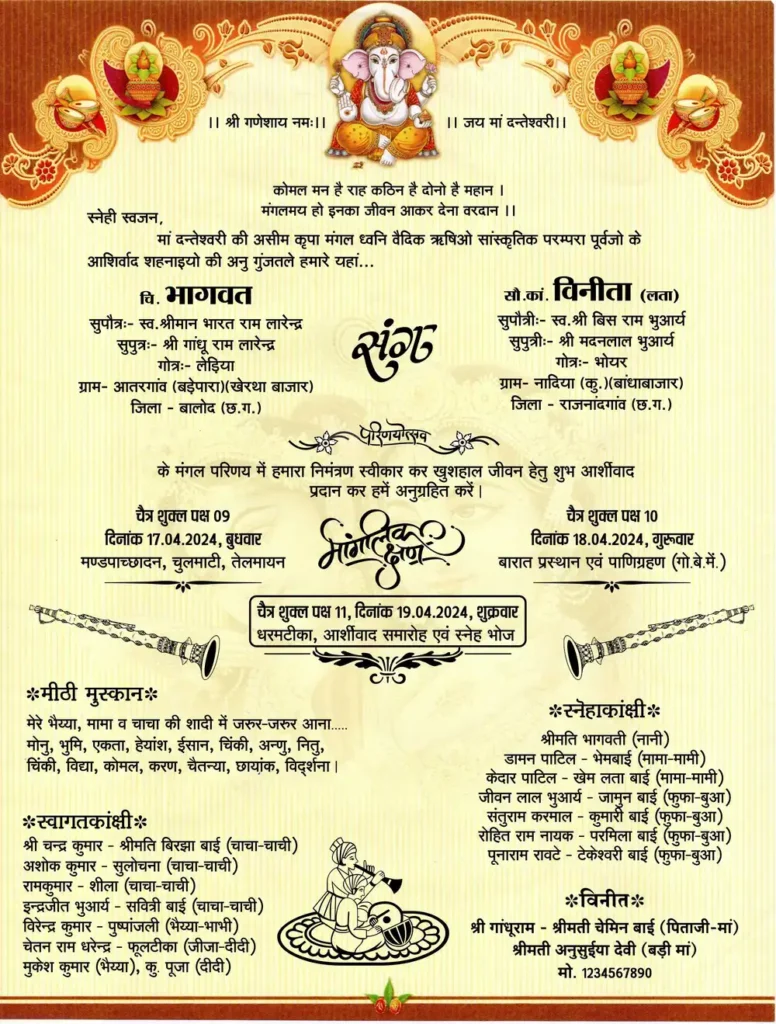 ।। श्री गणेशाय नमः।।
।। जय मां दन्तेश्वरी।।
कोमल मन है राह कठिन है दोनो है महान ।
मंगलमय हो इनका जीवन आकर देना वरदान ।।
स्नेही स्वजन,
मां दन्तेश्वरी की असीम कृपा मंगल ध्वनि वैदिक ऋषिओ सांस्कृतिक परम्परा पूर्वजो के
आशिर्वाद शहनाइयो की अनु गुंजतले हमारे यहां...
चि. भागवत
सुपौत्रः- स्व.श्रीमान भारत राम लारेन्द्र
सुपुत्रः- श्री गांधू राम लारेन्द्र
गोत्रः- लेड़िया
ग्राम- आतरगांव (बड़ेपारा)(खेरथा बाजार)
जिला - बालोद (छ.ग.)
संग
सौ.कां. विनीता (लता)
सुपौत्रीः- स्व.श्री बिस राम भुआर्य
सुपुत्रीः- श्री मदनलाल भुआर्य
गोत्रः- भोयर
ग्राम- नादिया (कु.)(बांधाबाजार)
जिला - राजनांदगांव (छ.ग.)
परिणयोत्सव
के मंगल परिणय में हमारा निमंत्रण स्वीकार कर खुशहाल जीवन हेतु शुभ आर्शीवाद
प्रदान कर हमें अनुग्रहित करें।
चैत्र शुक्ल पक्ष 09
दिनांक 17.04.2024, बुधवार
मण्डपाच्छादन, चुलमाटी, तेलमायन
मांगलिक
क्षण
चैत्र शुक्ल पक्ष 10
दिनांक 18.04.2024, गुरूवार
बारात प्रस्थान एवं पाणिग्रहण (गो.बे.में.)
चैत्र शुक्ल पक्ष 11, दिनांक 19.04.2024, शुक्रवार
धरमटीका, आर्शीवाद समारोह एवं स्नेह भोज
✲मीठी मुस्कान✲
मेरे भैय्या, मामा व चाचा की शादी में जरुर-जरुर आना.....
मोनु, भुमि, एकता, हेयांश, ईसान, चिंकी, अन्णु, नितु,
चिंकी, विद्या, कोमल, करण, चैतन्या, छायांक, विदर्शना।
✲स्वागतकांक्षी✲
श्री चन्द्र कुमार - श्रीमति बिरझा बाई (चाचा-चाची)
अशोक कुमार - सुलोचना (चाचा-चाची)
रामकुमार - शीला (चाचा-चाची)
इन्द्रजीत भुआर्य - सवित्री बाई (चाचा-चाची)
विरेन्द्र कुमार - पुष्पांजली (भैय्या-भाभी)
चेतन राम धरेन्द्र - फूलटीका (जीजा-दीदी)
मुकेश कुमार (भैय्या), कु. पूजा (दीदी)
✲स्नेहाकांक्षी✲
श्रीमति भागवती (नानी)
डामन पाटिल - भेमबाई (मामा-मामी)
केदार पाटिल - खेम लता बाई (मामा-मामी)
जीवन लाल भुआर्य - जामुन बाई (फुफा-बुआ)
संतुराम करमाल - कुमारी बाई (फुफा-बुआ)
रोहित राम नायक - परमिला बाई (फुफा-बुआ)
पूनाराम रावटे - टेकेश्वरी बाई (फुफा-बुआ)
✲विनीत✲
श्री गांधूराम - श्रीमती चेमिन बाई (पिताजी-मां)
श्रीमती अनुसुईया देवी (बड़ी मां)
मो. 1234567890